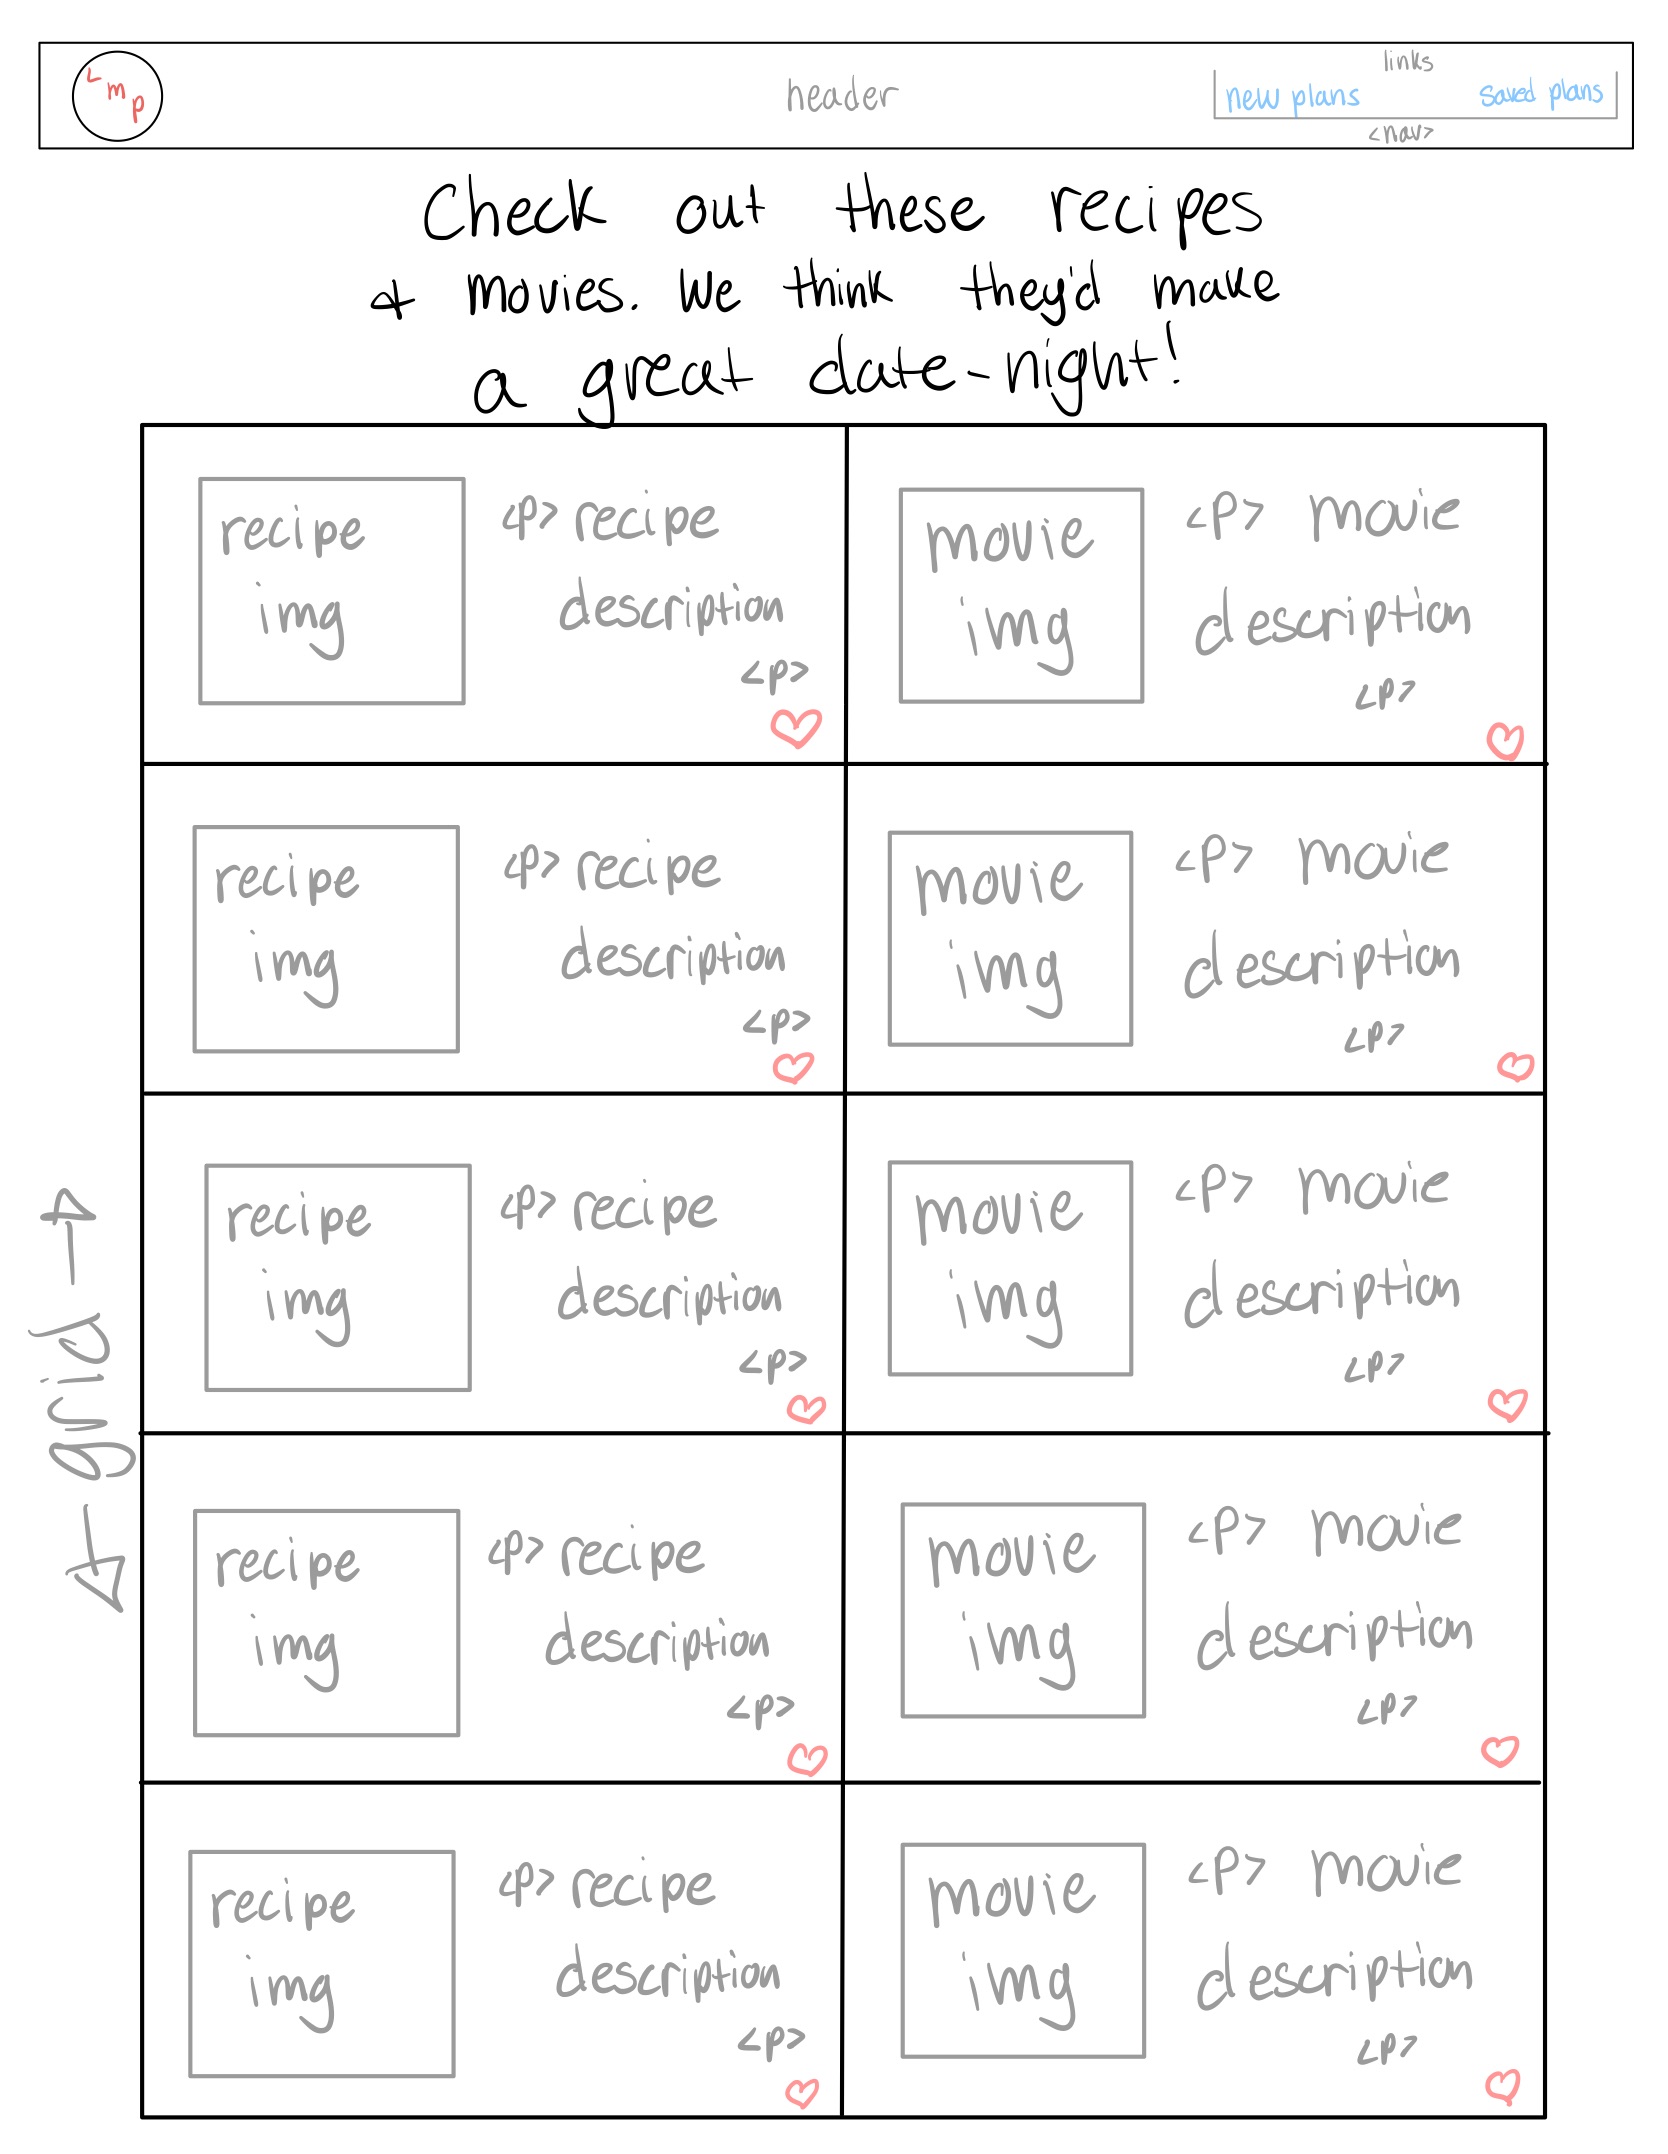 Lmp
header
links
new plans saved plans
<nav>
Check out these recipes
& movies. We think they'd make
a great date-night!
recipe
img
<p> recipe
description
<p>
movie
img
<p> movie
description
<p>
recipe
img
<p> recipe
description
<p>
movie
img
<p> movie
description
<p>
grid
recipe
img
<p> recipe
description
<p>
movie
img
<p> movie
description
<p>
recipe
img
<p> recipe
description
<p>
movie
img
<p> movie
description
<p>
recipe
img
<p> recipe
description
<p>
movie
img
<p> movie
description
<p>